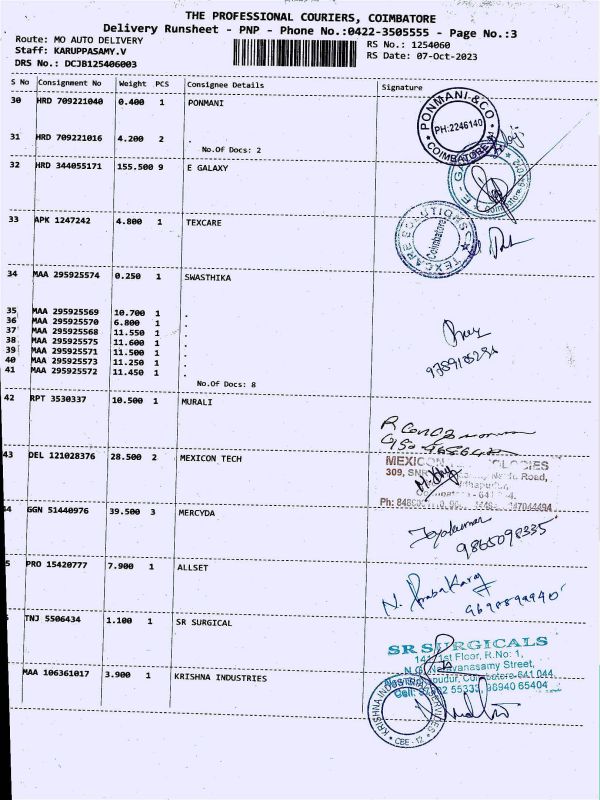 THE PROFESSIONAL COURIERS, COIMBATORE
Delivery Runsheet - PNP - Phone No.:0422-3505555 - Page No.:3
Route: MO AUTO DELIVERY
Staff: KARUPPASAMY.V
DRS No.: DCJB125406003
RS No.: 1254060
RS Date: 07-Oct-2023
S No Consignment No Weight PCS Consignee Details Signature
30 HRD 709221040 0.400 1 PONMANI
PONMANI & CO
PH:2246140
COIMBATORE
31 HRD 709221016 4.200 2 .
No.Of Docs: 2
32 HRD 344055171 155.500 9 E GALAXY
33 APK 1247242 4.800 1 TEXCARE
TEXCARE SOLUTIONS
Coimbatore
34 MAA 295925574 0.250 1 SWASTHIKA
35 MAA 295925569 10.700 1 .
36 MAA 295925570 6.800 1 .
37 MAA 295925568 11.550 1 .
38 MAA 295925575 11.600 1 .
39 MAA 295925571 11.500 1 .
40 MAA 295925573 11.250 1 .
41 MAA 295925572 11.450 1 .
No.Of Docs: 8
42 RPT 3530337 10.500 1 MURALI
43 DEL 121028376 28.500 2 MEXICON TECH
MEXICON
309, Road,
44 GGN 51440976 39.500 3 MERCYDA
Jeyakumar
9865098335
5 PRO 15420777 7.900 1 ALLSET
N. Prabakaran
TNJ 5506434 1.100 1 SR SURGICAL
SR SURGICALS
1st Floor, R.No: 1,
Street,
Coimbatore-641 044
Cell: 55333, 96940 65404
MAA 106361017 3.900 1 KRISHNA INDUSTRIES
KRISHNA INDUSTRIAL SERVICES
CBE - 12